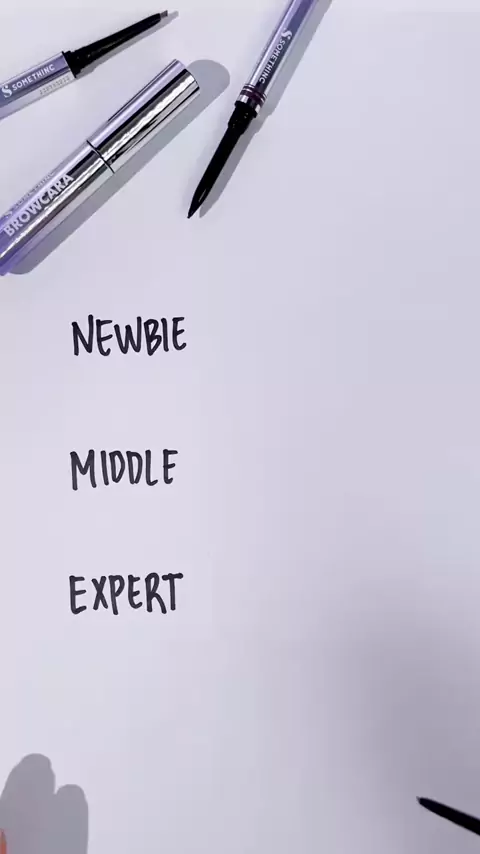 SOMETHINC
SOMETHINC
SOMETHINC
BROWCARA
NEWBIE
MIDDLE
EXPERT